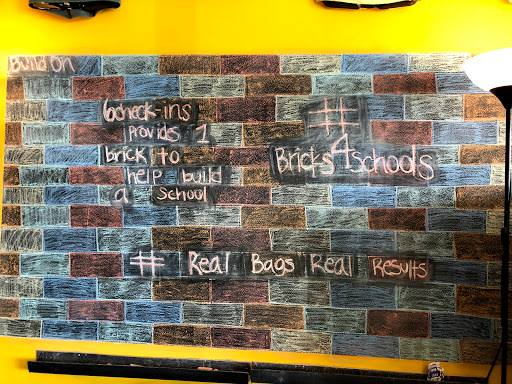 Build On
6check-ins
Provids 1
brick to
help build
a school
#
Bricks4schools
# Real Bags Real Results